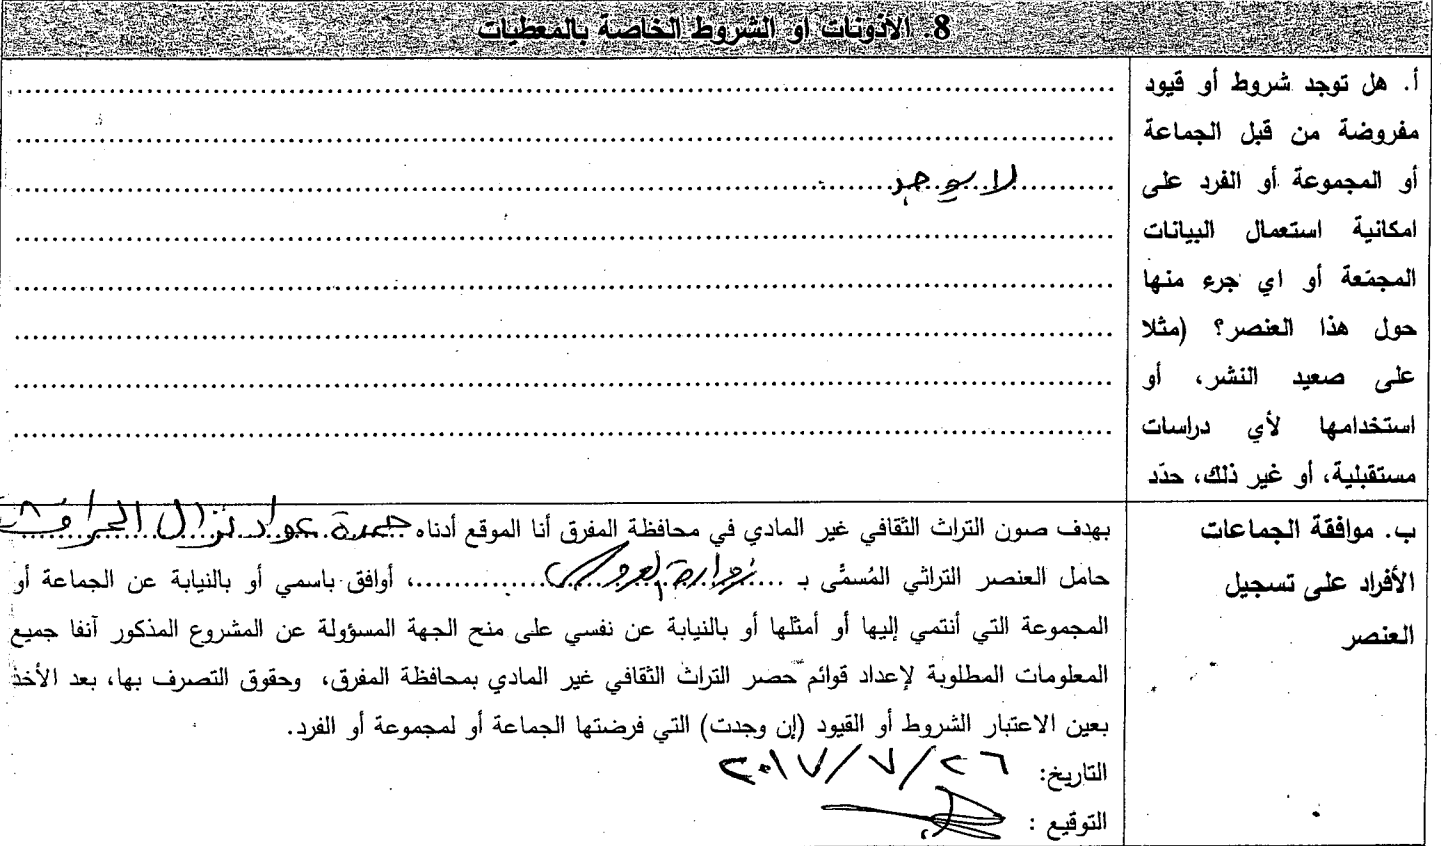 8. الأذونات او الشروط الخاصة بالمعطيات
أ. هل توجد شروط أو قيود
مفروضة من قبل الجماعة
أو المجموعة أو الفرد على
امكانية استعمال البيانات
المجمّعة أو اي جرء منها
حول هذا العنصر؟ (مثلا
على صعيد النشر، أو
استخدامها لأي دراسات
مستقبلية، أو غير ذلك، حدّد
لا يوجد
ب. موافقة الجماعات
الأفراد على تسجيل
العنصر
بهدف صون التراث الثقافي غير المادي في محافظة المفرق أنا الموقع أدناه حمدة عواد نزال
حامل العنصر التراثي المُسمَّى بـ ............، أوافق باسمي أو بالنيابة عن الجماعة أو
المجموعة التي أنتمي إليها أو أمثلها أو بالنيابة عن نفسي على منح الجهة المسؤولة عن المشروع المذكور آنفا جميع
المعلومات المطلوبة لإعداد قوائم حصر التراث الثقافي غير المادي بمحافظة المفرق، وحقوق التصرف بها، بعد الأخذ
بعين الاعتبار الشروط أو القيود (إن وجدت) التي فرضتها الجماعة أو لمجموعة أو الفرد.
التاريخ: ٢٠١٧/٧/٢٦
التوقيع :